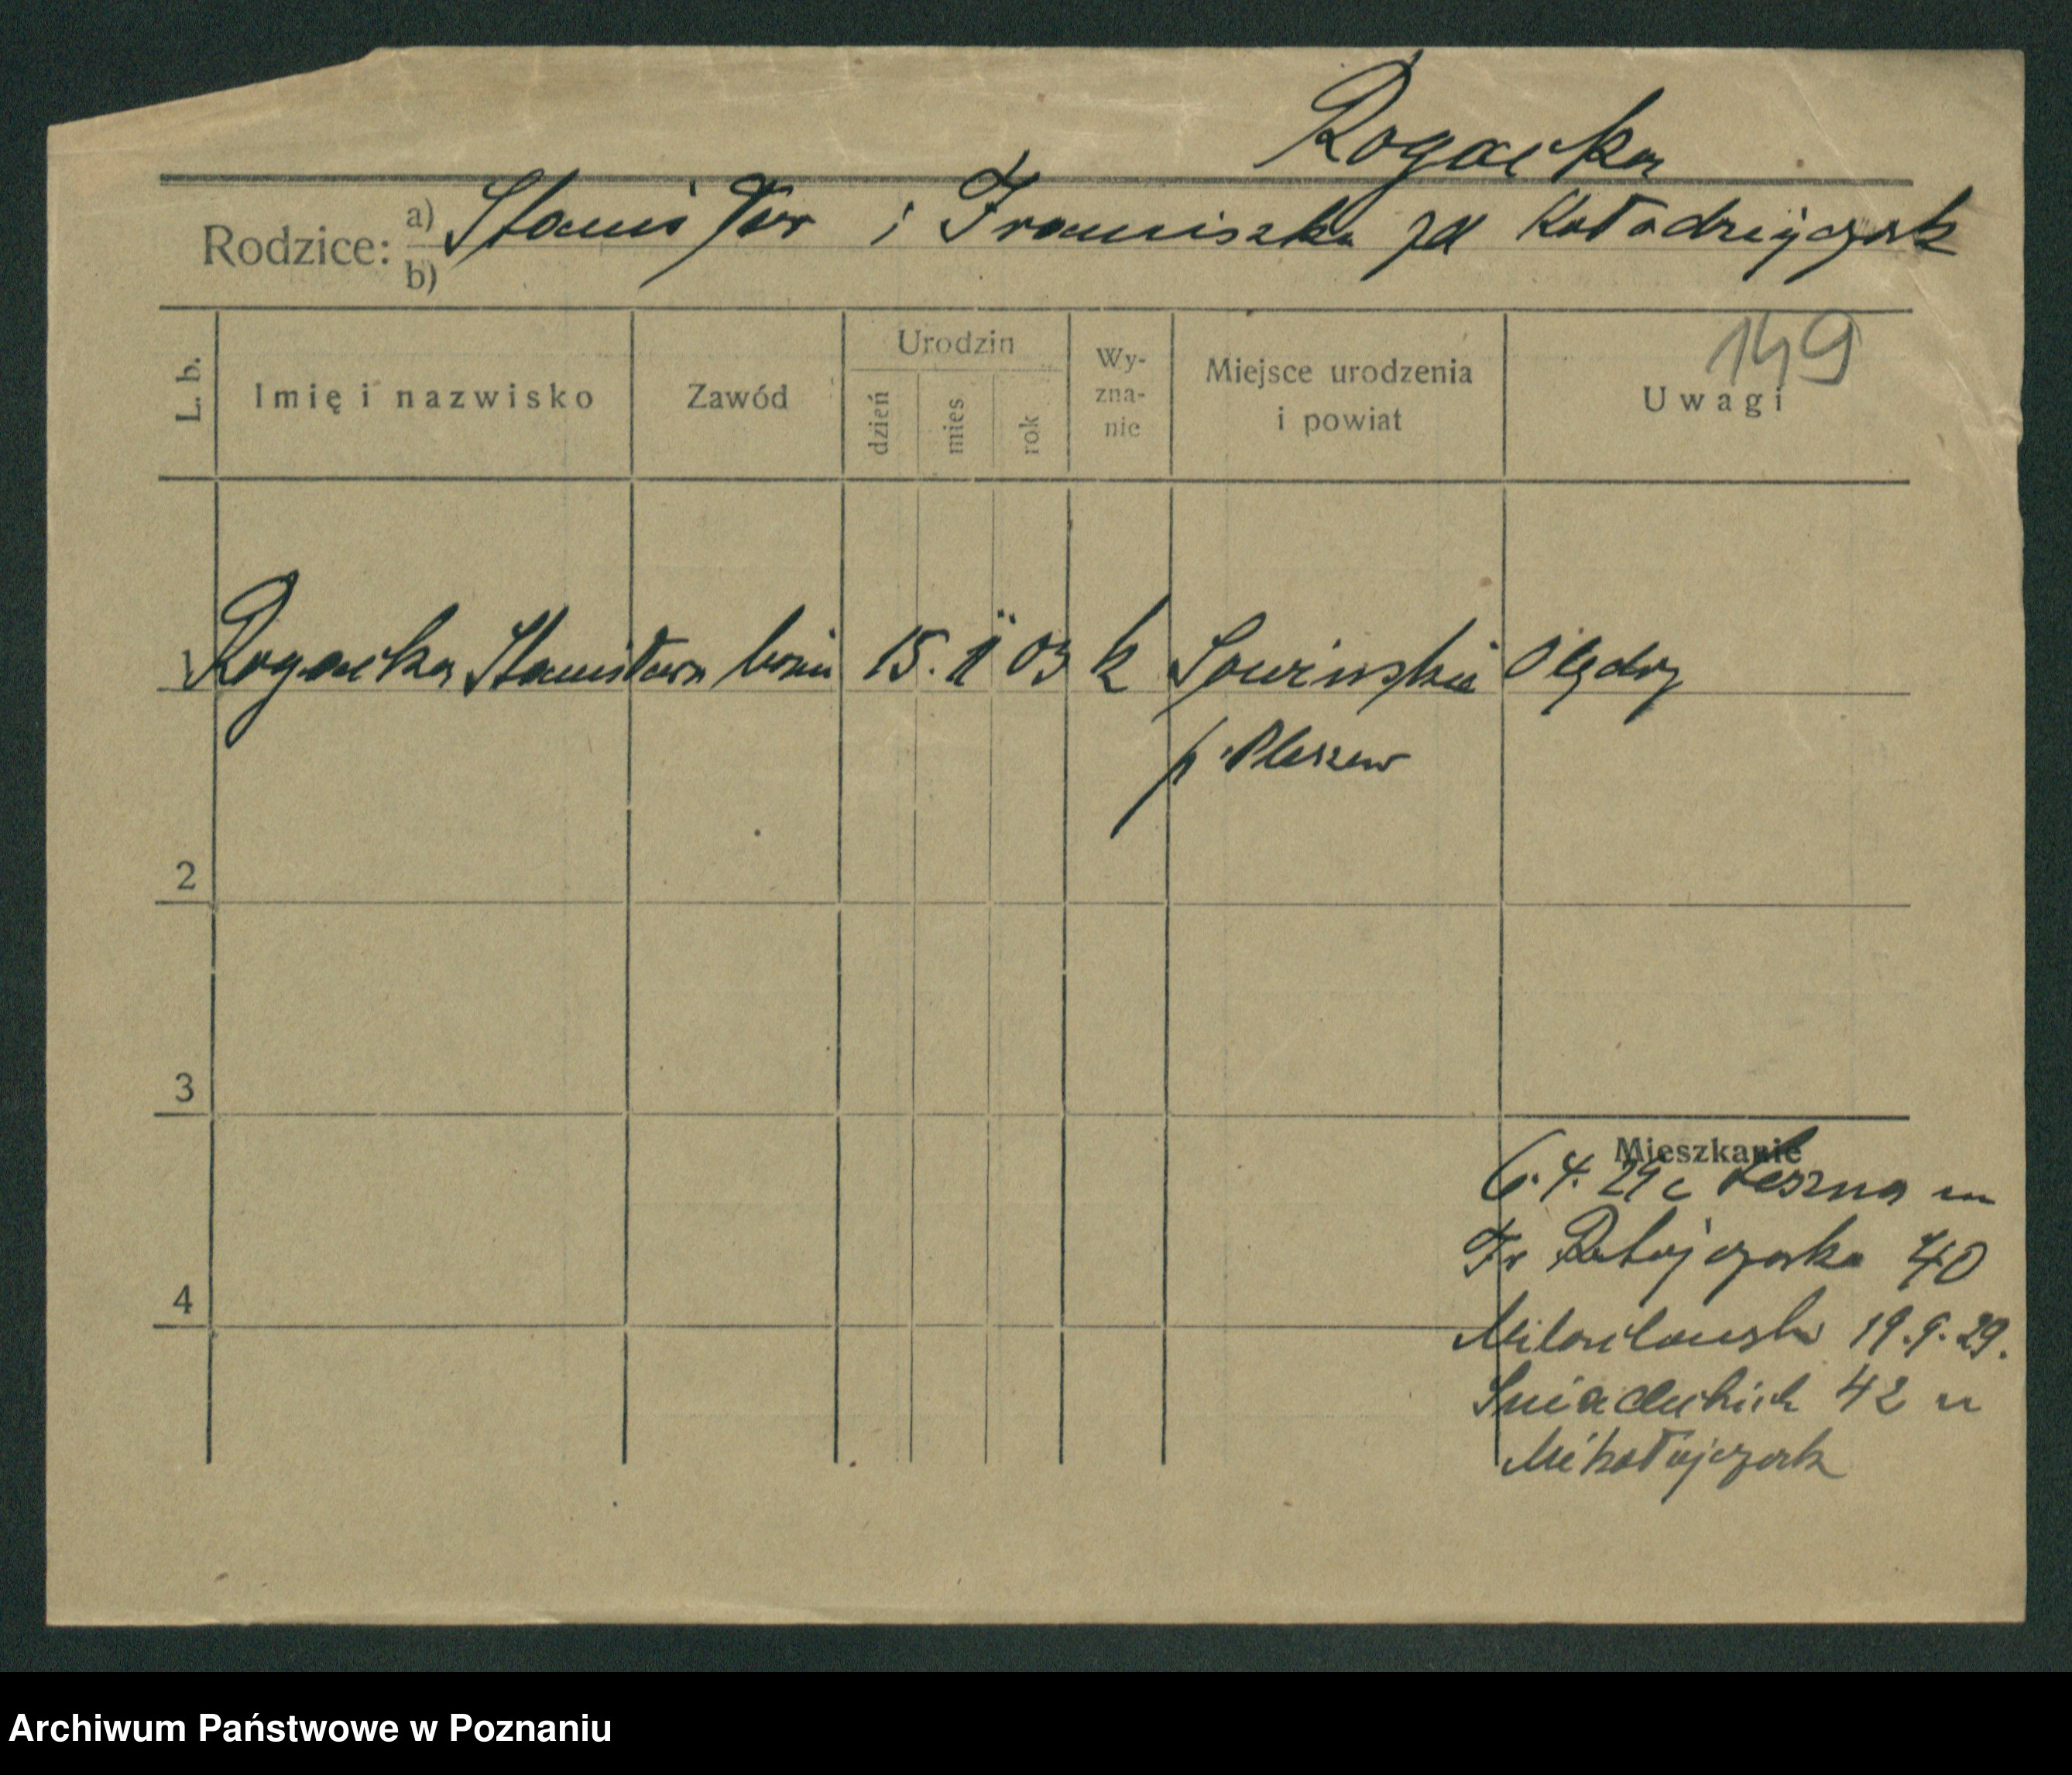 Rogacka
Rodzice: a) Stanisław i Franciszka zd Kołodziejczak
b)
149
L. b. Imię i nazwisko Zawód Urodzin dzień mies rok Wyznanie Miejsce urodzenia i powiat Uwagi
1 Rogacka Stanisława 15. II 03 k Sowińskie Olędry
p. Pleszew
2
3
Mieszkanie
6. 4. 29 z Leszna
Fr Ratajczaka 40
4
19. 9. 29.
Śniadeckich 42 u
Mikołajczak
Archiwum Państwowe w Poznaniu